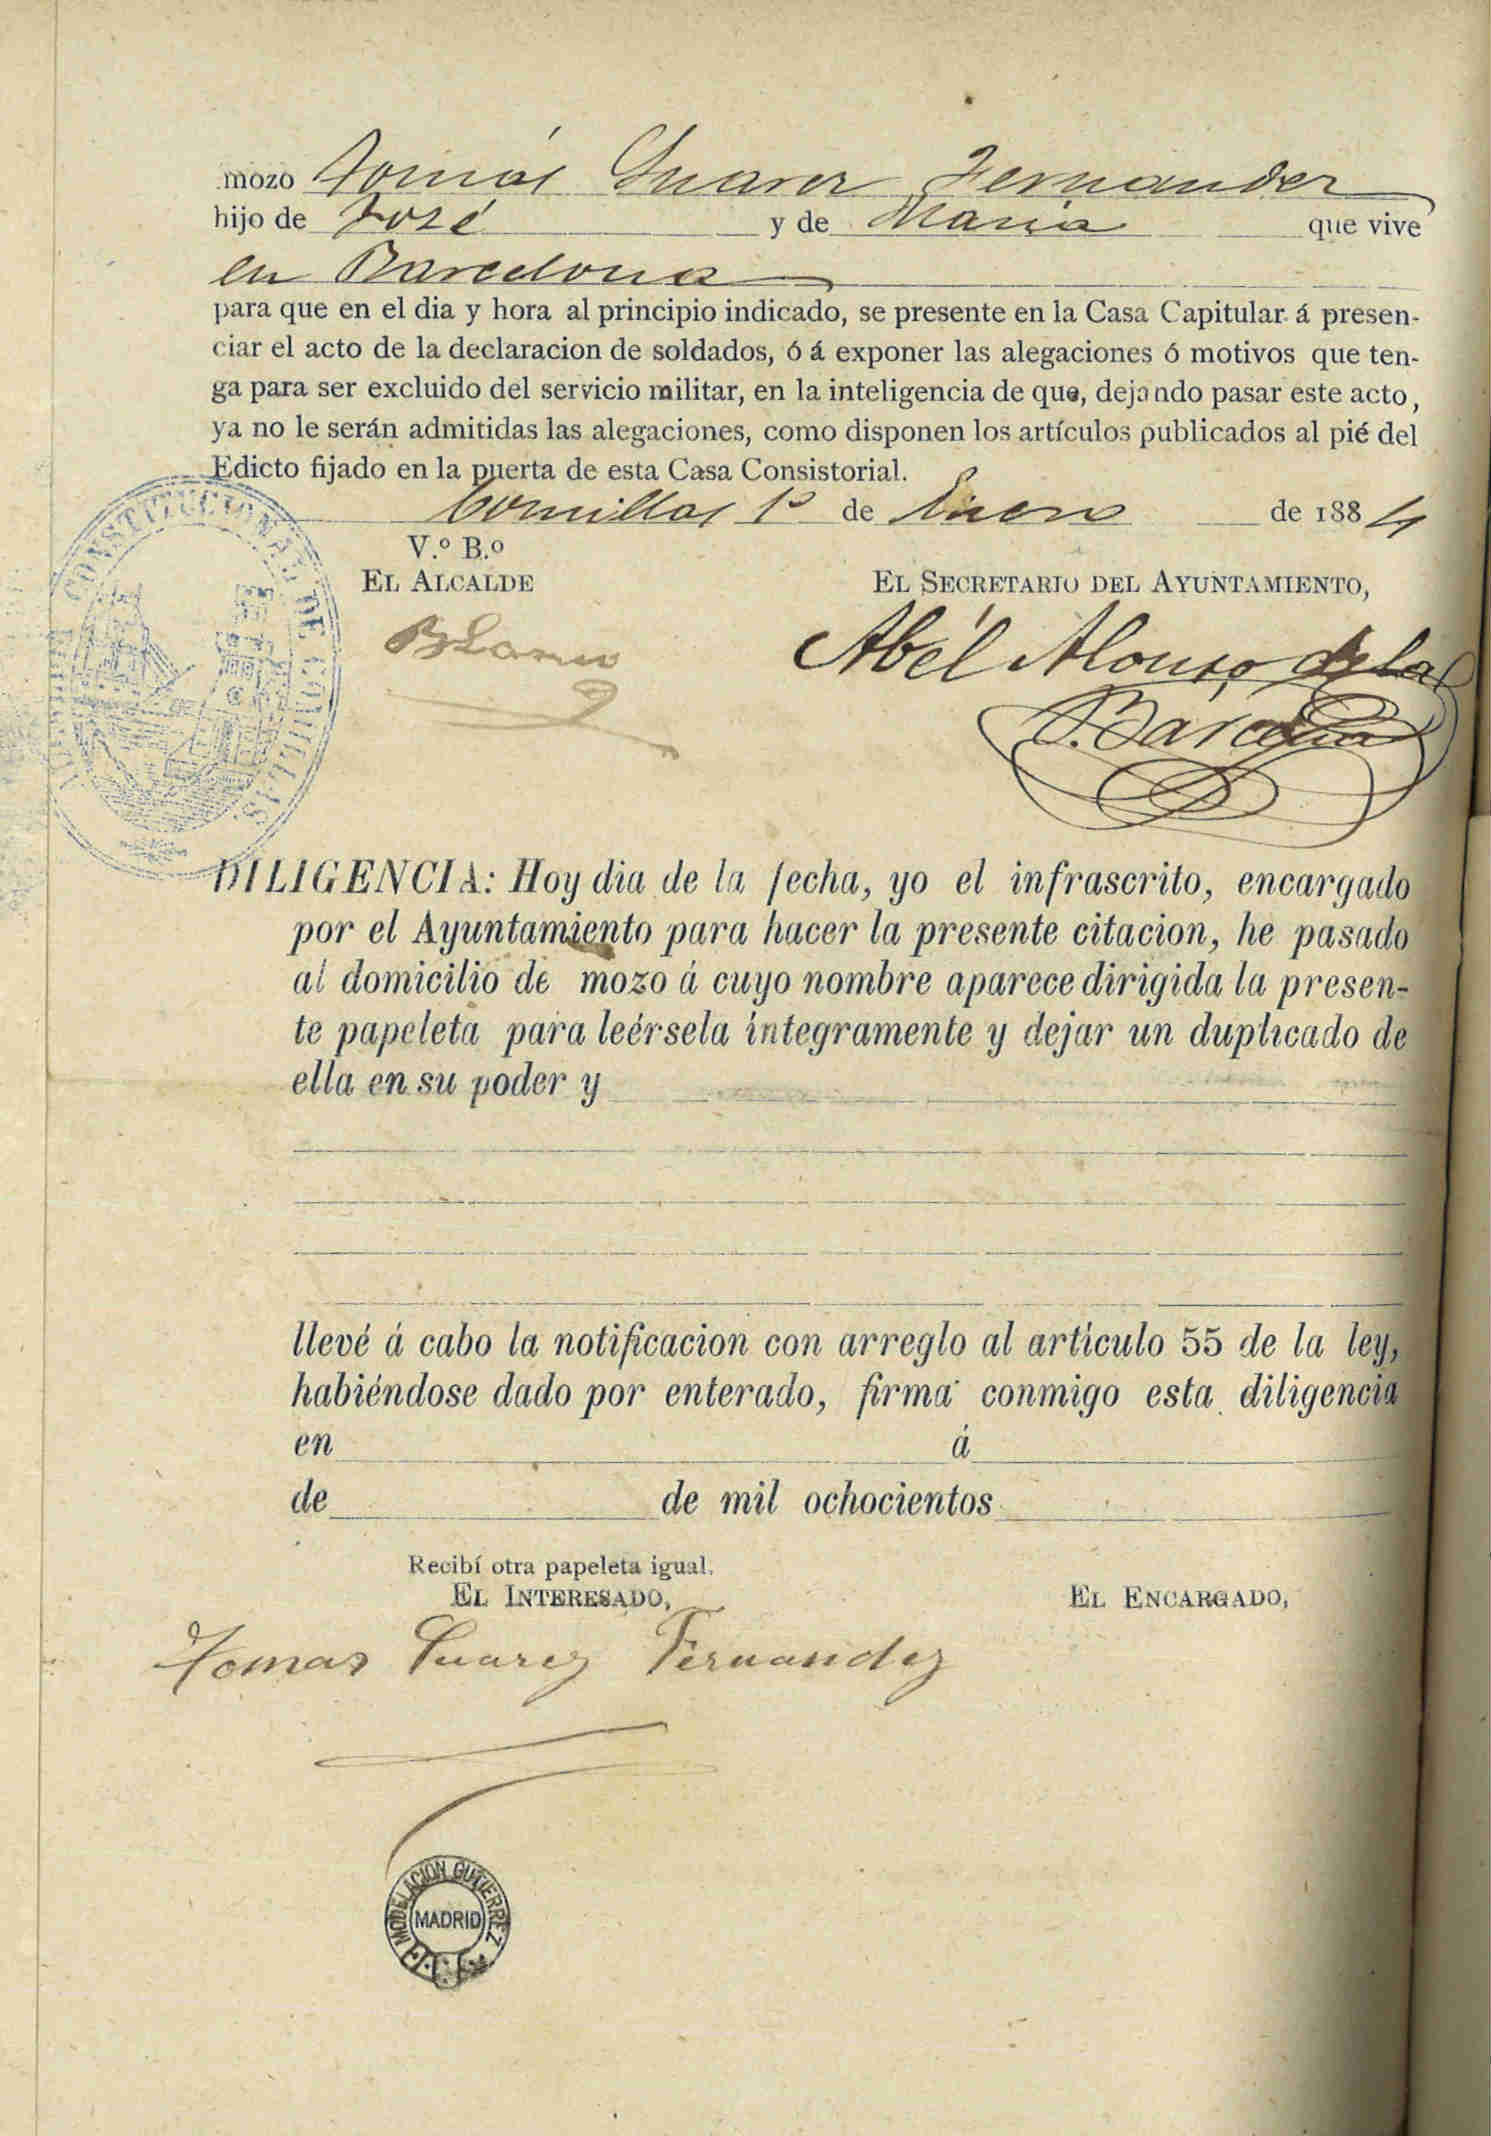 mozo Tomás Suarez Fernandez
hijo de José y de Maria que vive
en Barcelona
para que en el dia y hora al principio indicado, se presente en la Casa Capitular á presen-
ciar el acto de la declaracion de soldados, ó á exponer las alegaciones ó motivos que ten-
ga para ser excluido del servicio militar, en la inteligencia de que, dejando pasar este acto,
ya no le serán admitidas las alegaciones, como disponen los artículos publicados al pié del
Edicto fijado en la puerta de esta Casa Consistorial.
Comillas 1º de Enero de 1884
V.º B.º
EL ALCALDE
EL SECRETARIO DEL AYUNTAMIENTO,
Abél Alonso de la
Bárcena
CONSTITUCIONAL DE COMILLAS
DILIGENCIA: Hoy dia de la fecha, yo el infrascrito, encargado
por el Ayuntamiento para hacer la presente citacion, he pasado
al domicilio de mozo á cuyo nombre aparece dirigida la presen-
te papeleta para leérsela íntegramente y dejar un duplicado de
ella en su poder y
llevé á cabo la notificacion con arreglo al artículo 55 de la ley,
habiéndose dado por enterado, firma conmigo esta diligencia
en á
de de mil ochocientos
Recibí otra papeleta igual.
EL INTERESADO,
EL ENCARGADO,
Tomas Suarez Fernandez
MODELACION GUTIERREZ
MADRID